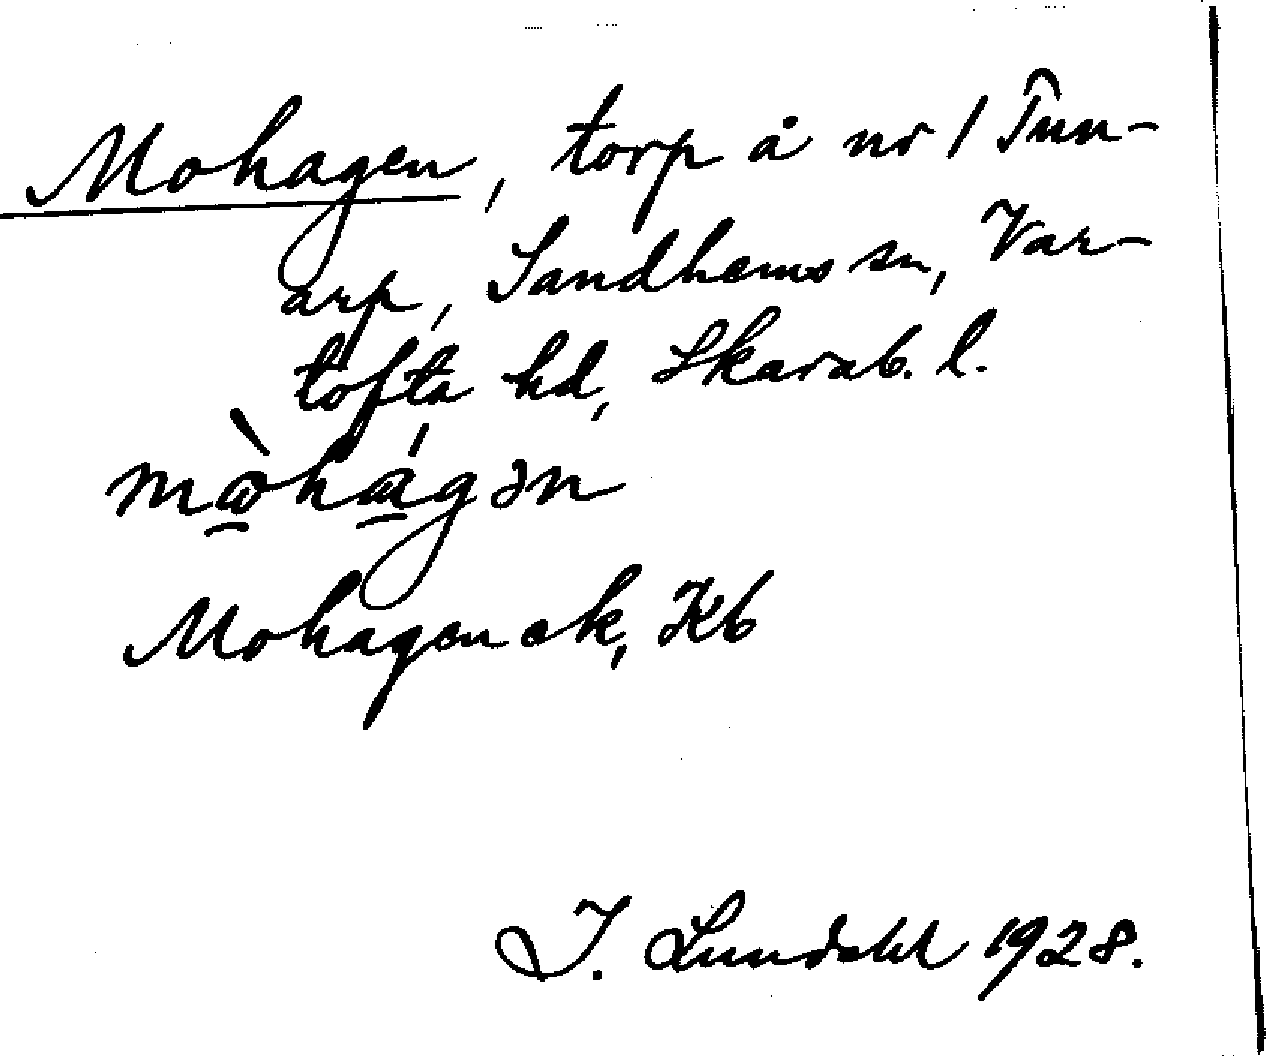 Mohagen, torp å nr 1 Tun-
arp, Sandhems sn, Var-
tofta hd, Skarab. l.
Mohagen ek, Kb
I. Lundahl 1928.